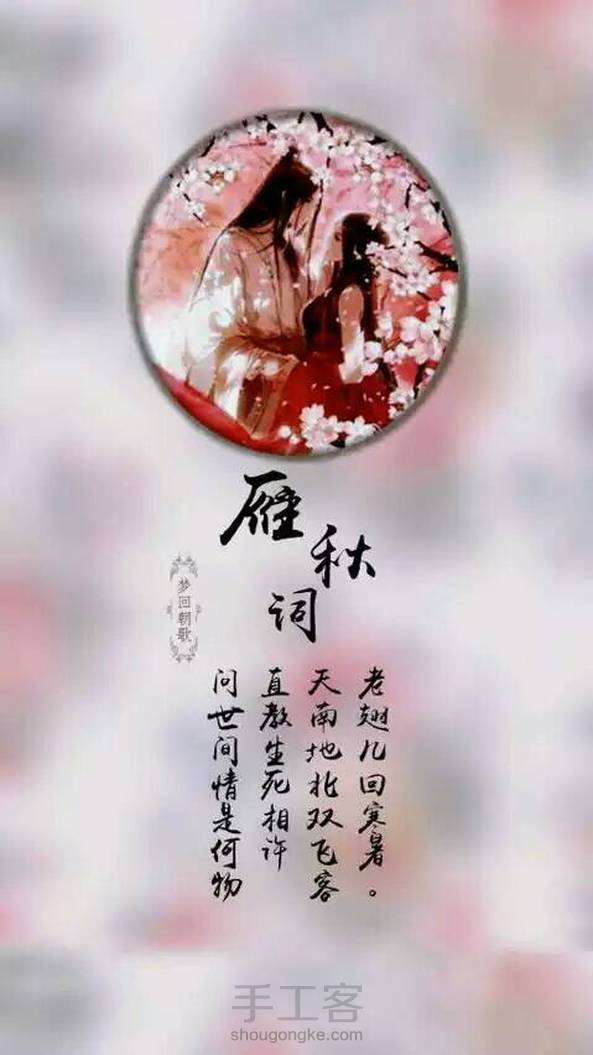 雁秋词
梦回朝歌
问世间情是何物
直教生死相许
天南地北双飞客
老翅几回寒暑。
手工客
shougongke.com